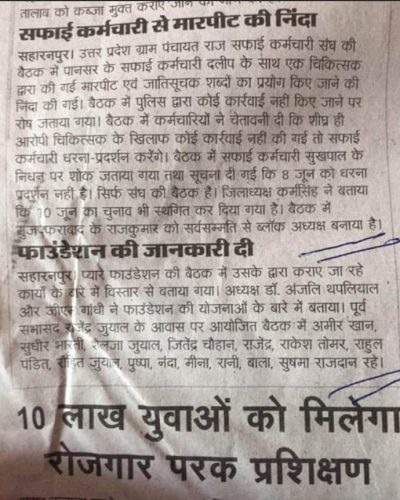 तालाब को कब्जा मुक्त कराए जाने की
सफाई कर्मचारी से मारपीट की निंदा
सहारनपुर। उत्तर प्रदेश ग्राम पंचायत राज सफाई कर्मचारी संघ की
बैठक में पानसर के सफाई कर्मचारी दलीप के साथ एक चिकित्सक
द्वारा की गई मारपीट एवं जातिसूचक शब्दों का प्रयोग किए जाने की
निंदा की गई। बैठक में पुलिस द्वारा कोई कार्रवाई नहीं किए जाने पर
रोष जताया गया। बैठक में कर्मचारियों ने चेतावनी दी कि शीघ्र ही
आरोपी चिकित्सक के खिलाफ कोई कार्रवाई नहीं की गई तो सफाई
कर्मचारी धरना-प्रदर्शन करेंगे। बैठक में सफाई कर्मचारी सुखपाल के
निधन पर शोक जताया गया तथा सूचना दी गई कि 8 जून को धरना
प्रदर्शन नहीं है। सिर्फ संघ की बैठक है। जिलाध्यक्ष कर्मसिंह ने बताया
कि 10 जून का चुनाव भी स्थगित कर दिया गया है। बैठक में
मुजफ्फराबाद के राजकुमार को सर्वसम्मति से ब्लॉक अध्यक्ष बनाया है।
फाउंडेशन की जानकारी दी
सहारनपुर। प्यारे फाउंडेशन की बैठक में उसके द्वारा कराए जा रहे
कार्यों के बारे में विस्तार से बताया गया। अध्यक्ष डॉ. अंजलि थपलियाल
और गांधी ने फाउंडेशन की योजनाओं के बारे में बताया। पूर्व
सभासद राजेंद्र जुयाल के आवास पर आयोजित बैठक में अमीर खान,
सुधीर भारती, शैलजा जुयाल, जितेंद्र चौहान, राजेंद्र, राकेश तोमर, राहुल
पंडित, रोहित जुयाल, पुष्पा, नंदा, मीना, रानी, बाला, सुषमा राजदान रहे।
10 लाख युवाओं को मिलेगा
रोजगार परक प्रशिक्षण